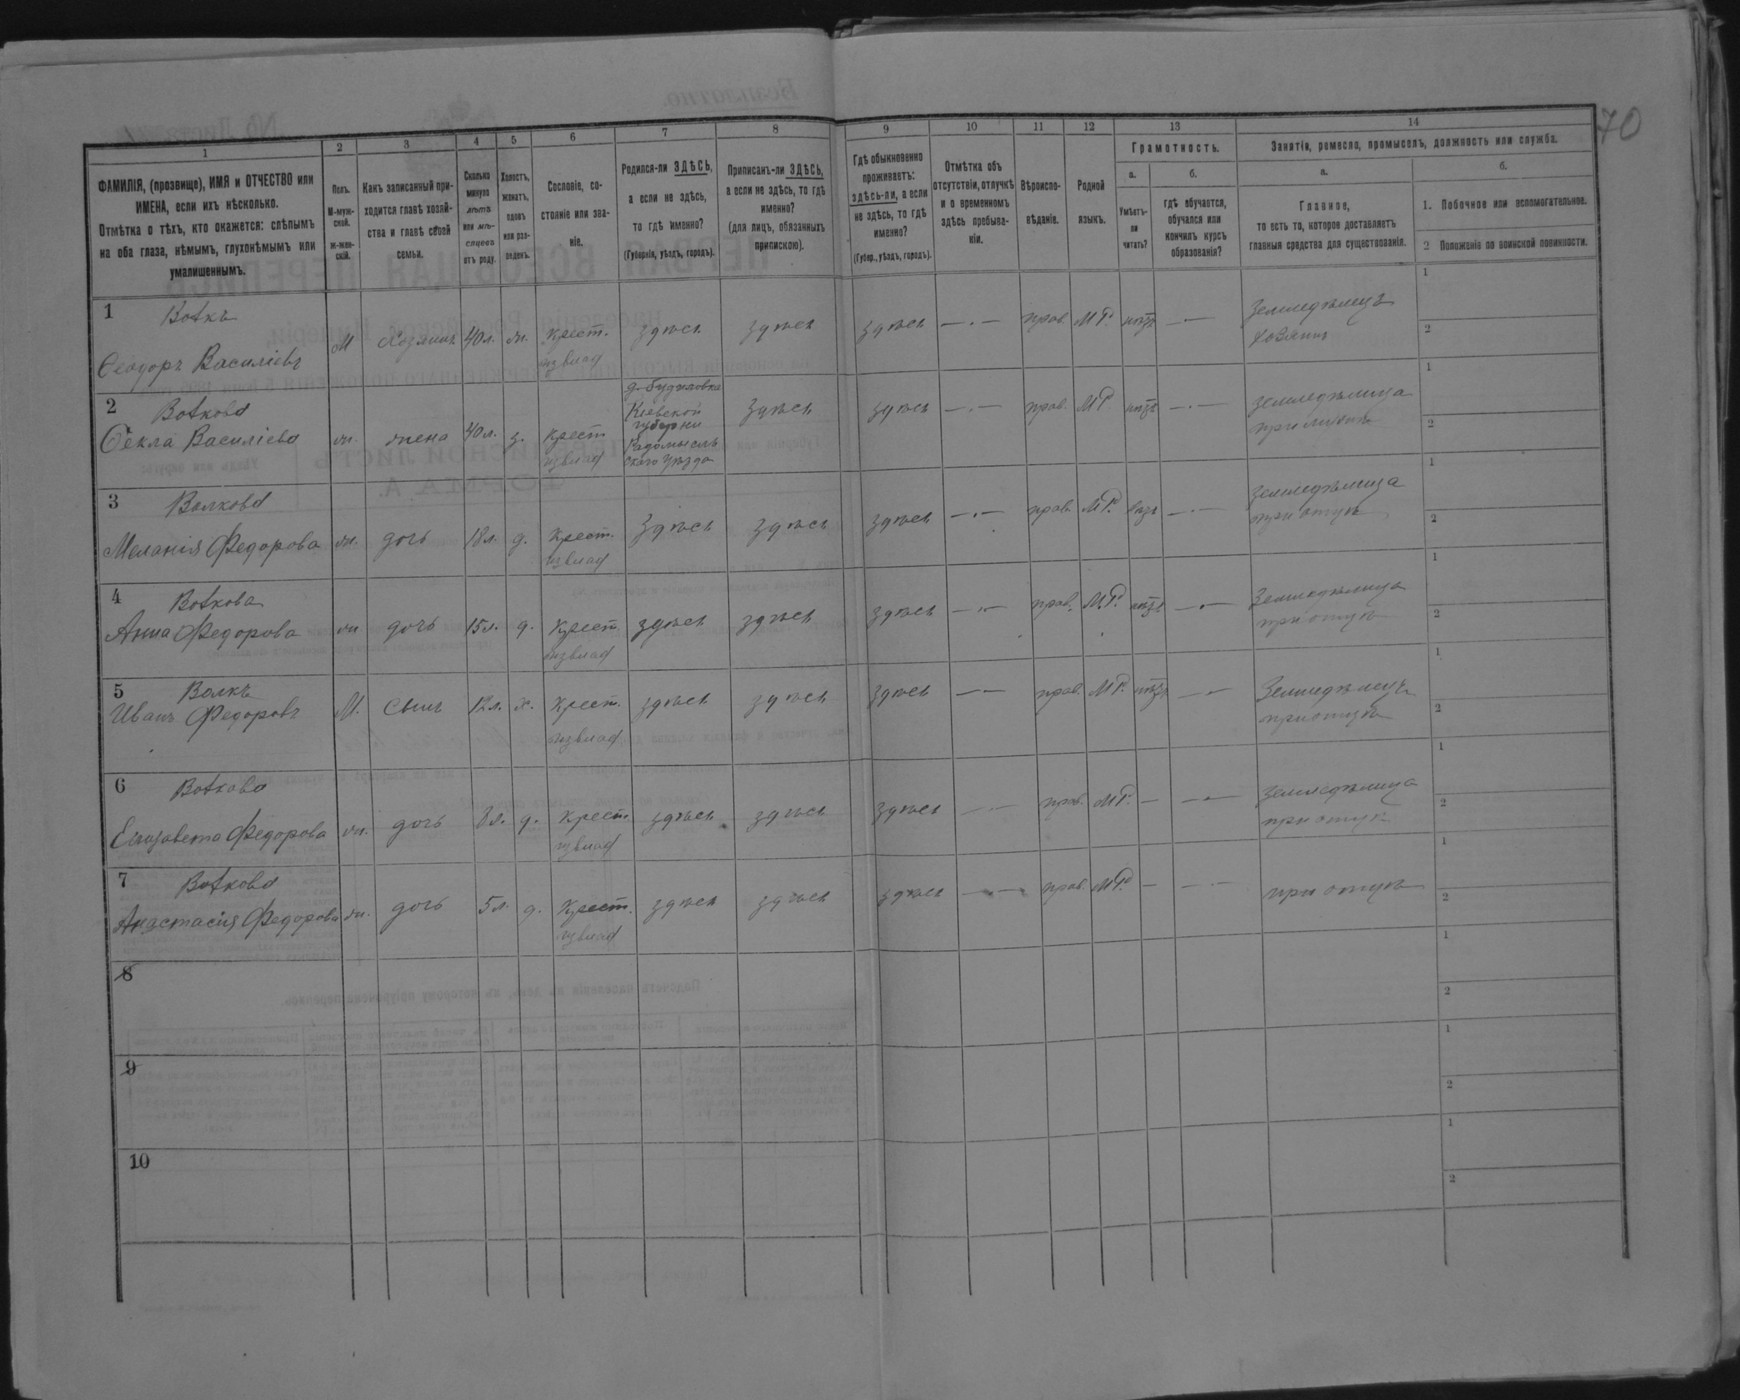 70
1
2
3
4
5
6
7
8
9
10
11
12
13
14
ФАМИЛІЯ, (прозвище), ИМЯ и ОТЧЕСТВО или
ИМЕНА, если ихъ нѣсколько.
Отмѣтка о тѣхъ, кто окажется: слѣпымъ
на оба глаза, нѣмымъ, глухонѣмымъ или
умалишеннымъ.
Полъ.
М-муж-
ской.
ж-жен-
скій.
Какъ записанный при-
ходится главѣ хозяй-
ства и главѣ своей
семьи.
Сколько
минуло
лѣтъ
или мѣ-
сяцевъ
отъ роду.
Холостъ,
женатъ,
вдовъ
или раз-
веденъ.
Сословіе, со-
стояніе или зва-
ніе.
Родился-ли ЗДѢСЬ,
а если не здѣсь,
то гдѣ именно?
(Губернія, уѣздъ, городъ).
Приписанъ-ли ЗДѢСЬ,
а если не здѣсь, то гдѣ
именно?
(для лицъ, обязанныхъ
припискою).
Гдѣ обыкновенно
проживаетъ:
здѣсь-ли, а если
не здѣсь, то гдѣ
именно?
(Губер., уѣздъ, городъ).
Отмѣтка объ
отсутствіи, отлучкѣ
и о временномъ
здѣсь пребыва-
ніи.
Вѣроиспо-
вѣданіе.
Родной
языкъ.
Грамотность.
а.
Умѣетъ-
ли
читать?
б.
гдѣ обучается,
обучался или
кончилъ курсъ
образованія?
Занятіе, ремесло, промыселъ, должность или служба.
а.
Главное,
то есть то, которое доставляетъ
главныя средства для существованія.
б.
1. Побочное или вспомогательное.
2 Положеніе по воинской повинности.
1 Волкъ
Ѳеодоръ Василіевъ М Хозяинъ 40 л. ж. крест. здѣсь здѣсь здѣсь — . — прав. М Р. — . — Земледѣлецъ
хозяинъ
1
2
2 Волкова
Ѳекла Василіева ж. жена 40 л. з. крест
Кіевской
губерни
Радомысль
скаго уѣзда
здѣсь здѣсь — . — прав. М Р — . — земледѣлица
1
2
3 Волкова
Меланія Федорова ж. дочь 18 л. д. крест. здѣсь здѣсь здѣсь — . — прав. М Р. — . — земледѣлица
при отцѣ
1
2
4 Волкова
Анна Федорова ж дочь 15 л. д. крест здѣсь здѣсь здѣсь — . — прав. М Р. — . — Земледѣлица
при отцѣ
1
2
5 Волкъ
Иванъ Федоровъ М. сынъ 12 л. х. крест. здѣсь здѣсь здѣсь — — прав. М Р. — . — Земледѣлецъ
при отцѣ
1
2
6 Волкова
Елизавета Федорова ж. дочь 8 л. д. крест здѣсь здѣсь здѣсь — — прав. М Р. — — . — земледѣлица
при отцѣ
1
2
7 Волкова
Анастасія Федорова ж. дочь 5 л. д. крест. здѣсь здѣсь здѣсь — . — прав. М Р. — — . — при отцѣ
1
2
8
1
2
9
1
2
10
1
2